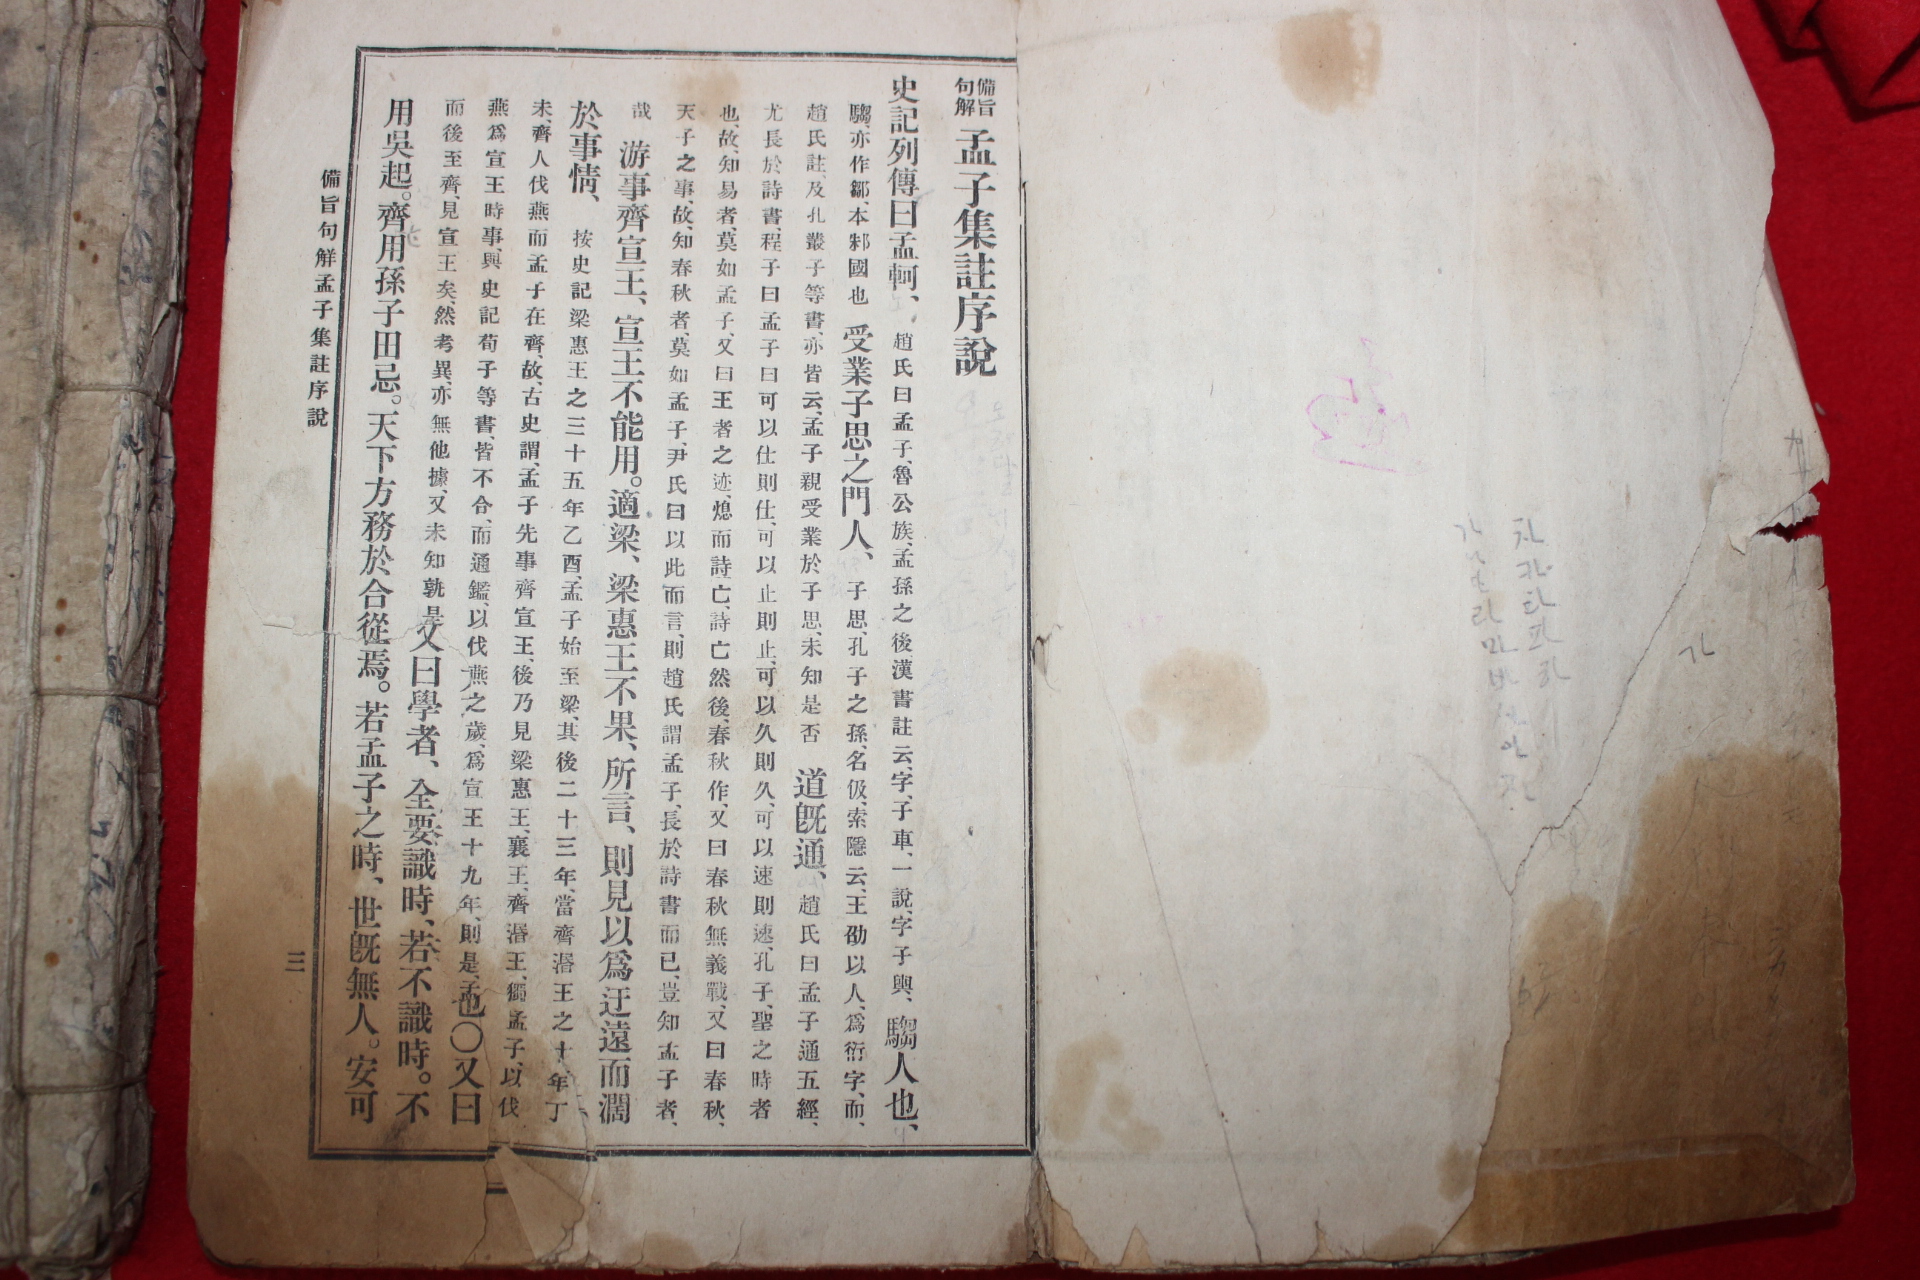 備旨句解 孟子集註序說
史記列傳曰孟軻、趙氏曰孟子、魯公族、孟孫之後、漢書註云、字、子車、一說、字子輿、騶人也、
騶、亦作鄒、本邾國也 受業子思之門人、子思、孔子之孫、名伋、索隱云、王劭以人、爲衍字、而、
趙氏註、及孔叢子等書、亦皆云、孟子親受業於子思、未知是否 道旣通、趙氏曰孟子通五經、
尤長於詩書、程子曰孟子曰可以仕則仕、可以止則止、可以久則久、可以速則速、孔子、聖之時者
也、故、知易者、莫如孟子、又曰王者之迹、熄而詩亡、詩亡然後、春秋作、又曰春秋無義戰、又曰春秋、
天子之事、故、知春秋者、莫如孟子、尹氏曰以此而言、則趙氏謂孟子、長於詩書而已、豈知孟子者、
哉 游事齊宣王、宣王不能用。適梁、梁惠王不果、所言、則見以爲迂遠而濶
於事情、按史記梁惠王之三十五年乙酉、孟子始至梁、其後二十三年、當齊湣王之十年丁
未、齊人伐燕而孟子在齊、故、古史謂、孟子先事齊宣王、後乃見梁惠王、襄王、齊湣王、獨孟子、以伐
燕爲宣王時事、與史記荀子等書、皆不合、而通鑑、以伐燕之歲、爲宣王十九年、則是、孟
而後至齊、見宣王矣、然考異、亦無他據、又未知孰是
也〇又曰
用吳起。齊用孫子田忌。天下方務於合從
又曰學者、全要識時、若不識時。不
焉。若孟子之時、世旣無人。安可
備旨句解孟子集註序說
三
차카타파하
가